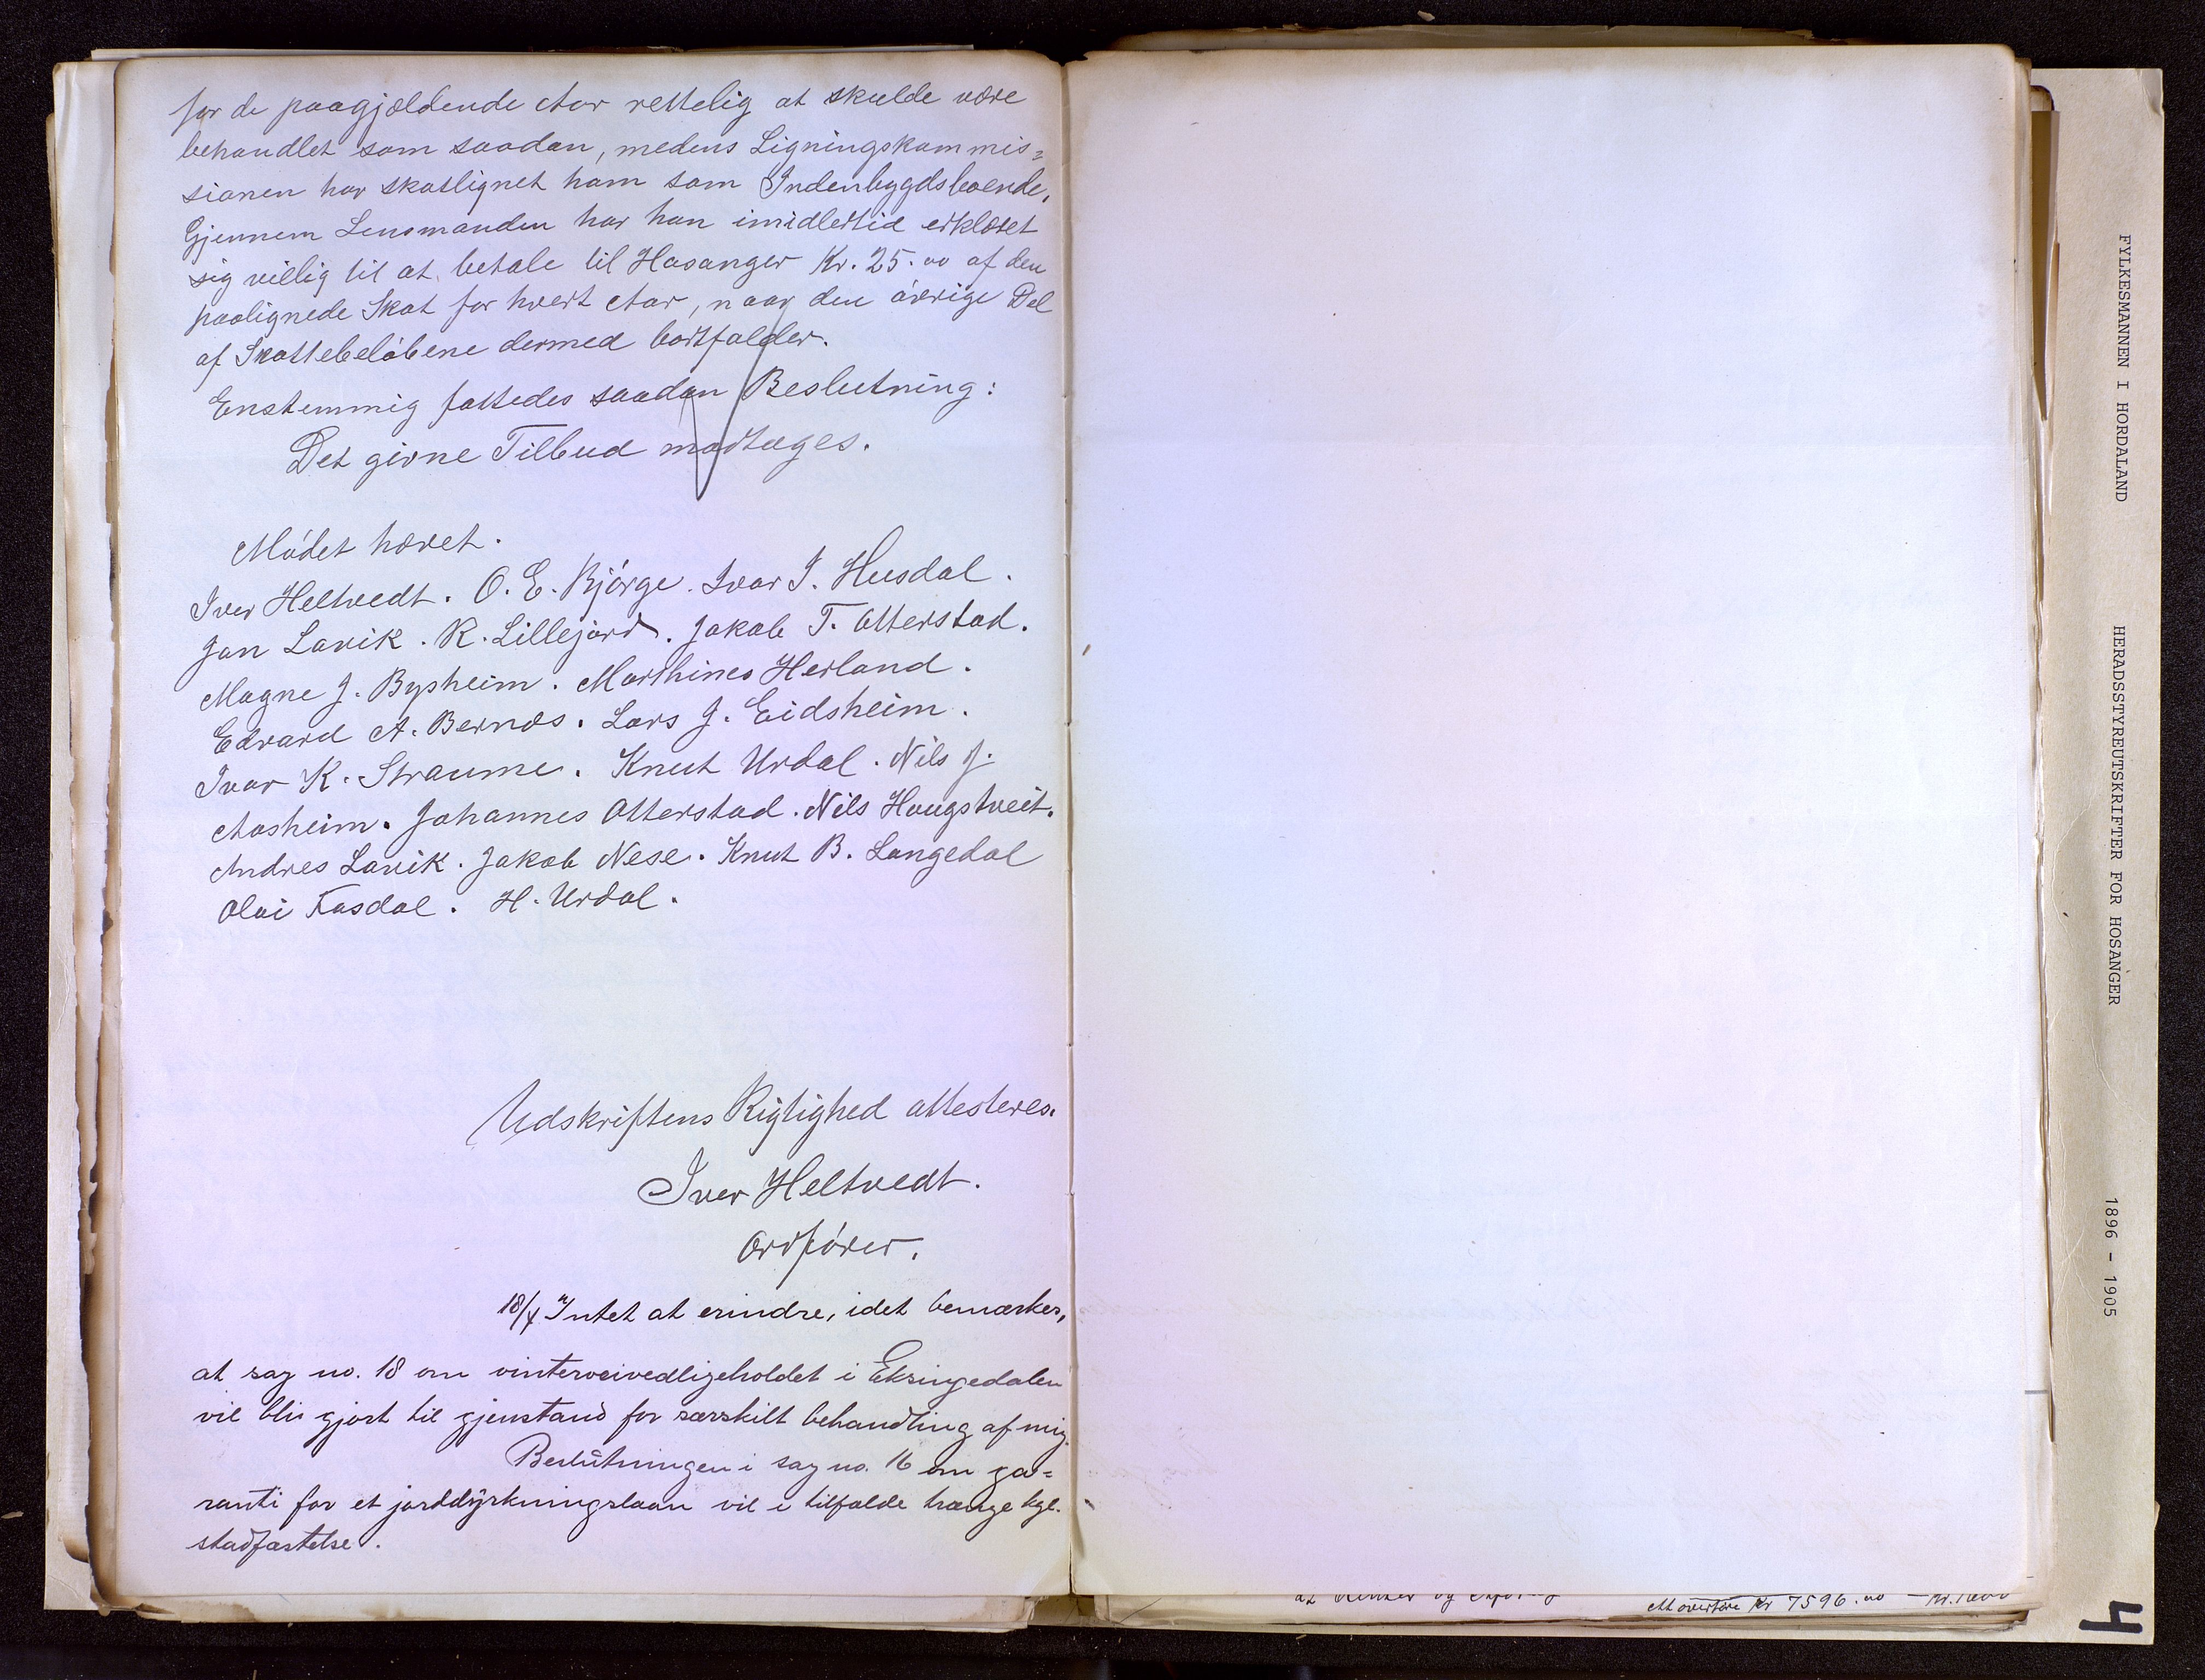 for de paagjældende Aar rettelig at skulde være
behandlet som saadan, medens Ligningskommis=
sionen har skatlignet ham som Indenbygdsboende.
Gjennem Lensmanden har han imidlertid erklæret
sig villig til at betale til Hosanger Kr. 25.00 af den
paalignede Skat for hvert Aar, naar den øvrige Del
af Skattebeløbene dermed bortfalder.
Enstemmig fattedes saadan Beslutning:
Det givne Tilbud modtages.
Mødet hævet.
Iver Heltvedt. O. E. Bjørge. Ivar I. Husdal.
Jan Lavik. R. Lillejord. Jakob T. Otterstad.
Magne J. Bysheim. Marthines Herland.
Edvard A. Bernæs. Lars J. Eidsheim.
Ivar K. Straume. Knut Urdal. Nils J.
Aasheim. Johannes Otterstad. Nils Hougstveit.
Andres Lavik. Jakob Nese. Knut B. Langedal
Olai Fasdal. H. Urdal.
Udskriftens Rigtighed attesteres.
Iver Heltvedt.
Ordfører.
18/4 Intet at erindre, idet bemærkes,
at sag no. 18 om vinterveivedligeholdet i Eksingedalen
vil bli gjort til gjenstand for særskilt behandling af mig.
Beslutningen i sag no. 16 om ga=
ranti for et jorddyrkningslaan vil i tilfælde trænge kgl.
stadfæstelse.
FYLKESMANNEN I HORDALAND HERADSSTYREUTSKRIFTER FOR HOSANGER 1896 - 1905
at Renter og
Kr 7596.00
4